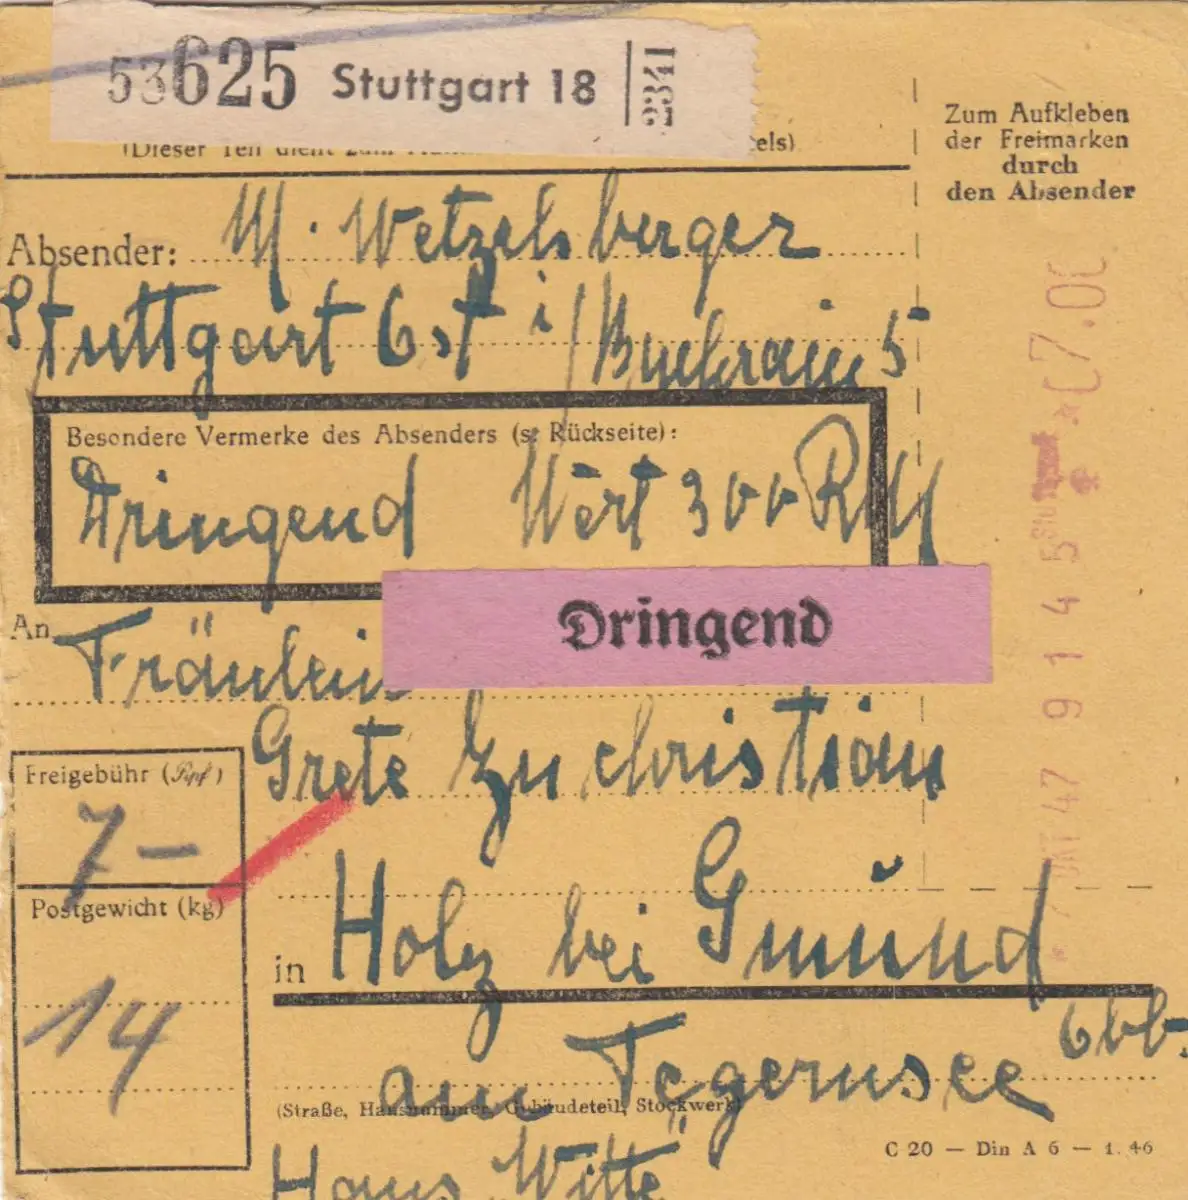 53625 Stuttgart 18 2341
(Dieser Teil dient zum
Zum Aufkleben
der Freimarken
durch
den Absender
Absender: M. Wetzelsberger
Stuttgart Ost i / Buchrain 5
Besondere Vermerke des Absenders (s. Rückseite):
Dringend Wert 300 RM
Dringend
An Fräulein
Grete Zuchristian
Freigebühr (Rpf)
7 —
Postgewicht (kg)
14
in Holz bei Gmünd
am Tegernsee Obb.
(Straße, Hausnummer, Gebäudeteil, Stockwerk)
C 20 — Din A 6 — 1. 46
Haus Witte
*(7.00
Stuttgart
9 1 4 5
OKT 47